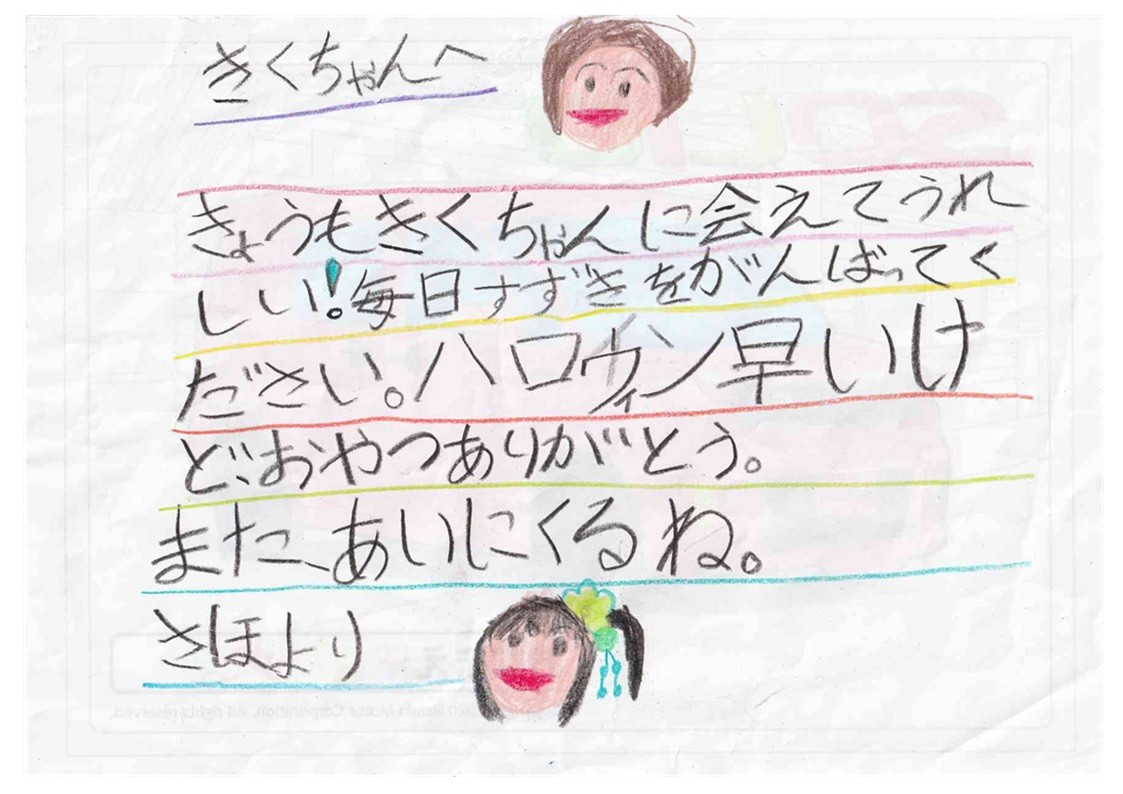 きくちゃんへ
きょうもきくちゃんに会えてうれ
しい!毎日すずきをがんばってく
ださい。ハロウィン早いけ
ど、おやつありがとう。
また、あいにくるね。
さほより